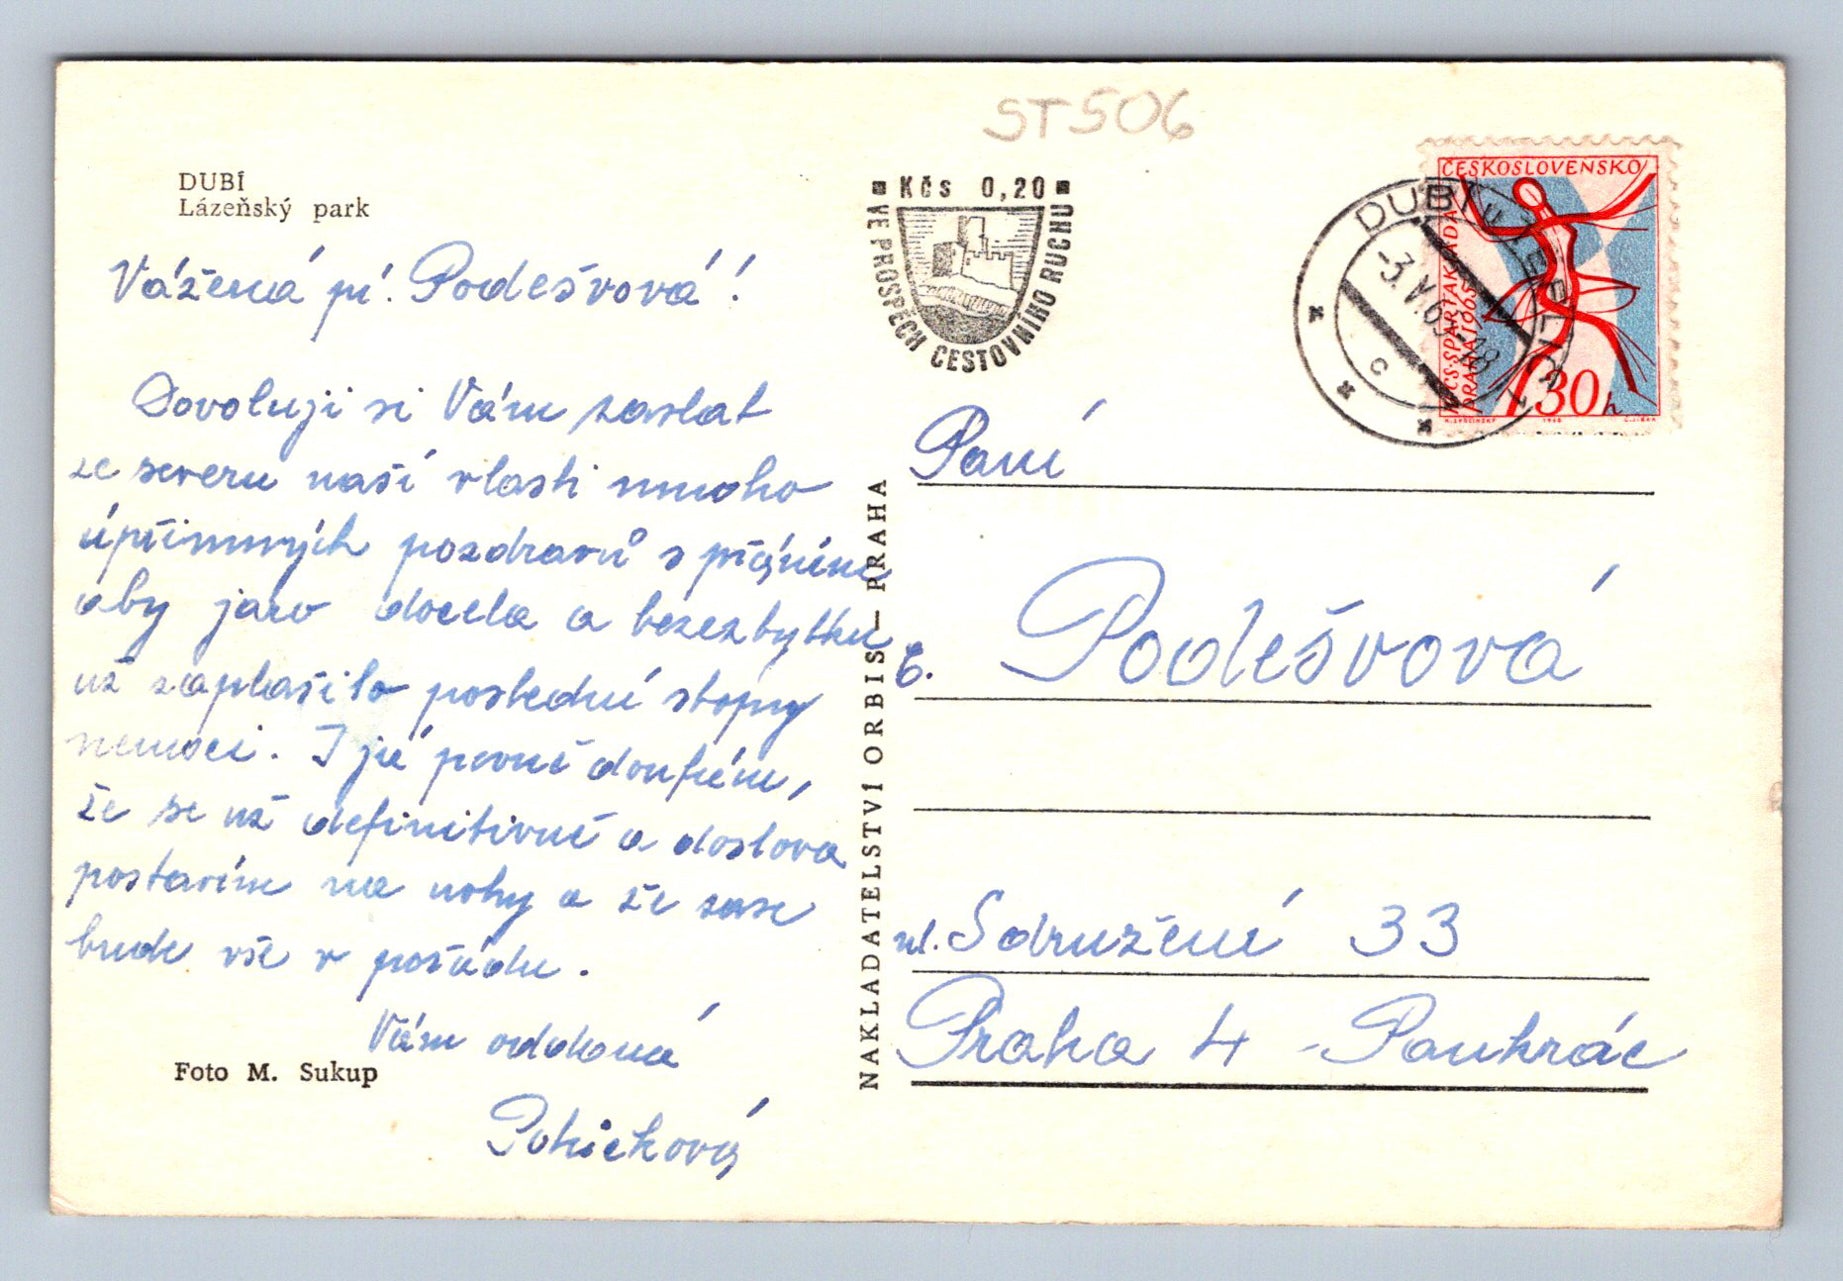 ST506
DUBÍ
Lázeňský park
Kčs 0,20
VE PROSPĚCH CESTOVNÍHO RUCHU
ČESKOSLOVENSKO
PRAHA 1965
30 h
DUBÍ u
Vážená pí. Podešvová!
Dovoluji si Vám zaslat
ze severu naší vlasti mnoho
úpřimných pozdravů s přáním
aby jaro docela a bezezbytku
už zaplašilo poslední stopy
nemoci. I já pevně doufám,
že se už definitivně a doslova
postavím na nohy a že zase
bude vše v pořádku.
Vám oddaná
Foto M. Sukup
NAKLADATELSTVÍ ORBIS — PRAHA
Paní
Podešvová
ul. Sdružení 33
Praha 4 - Pankrác